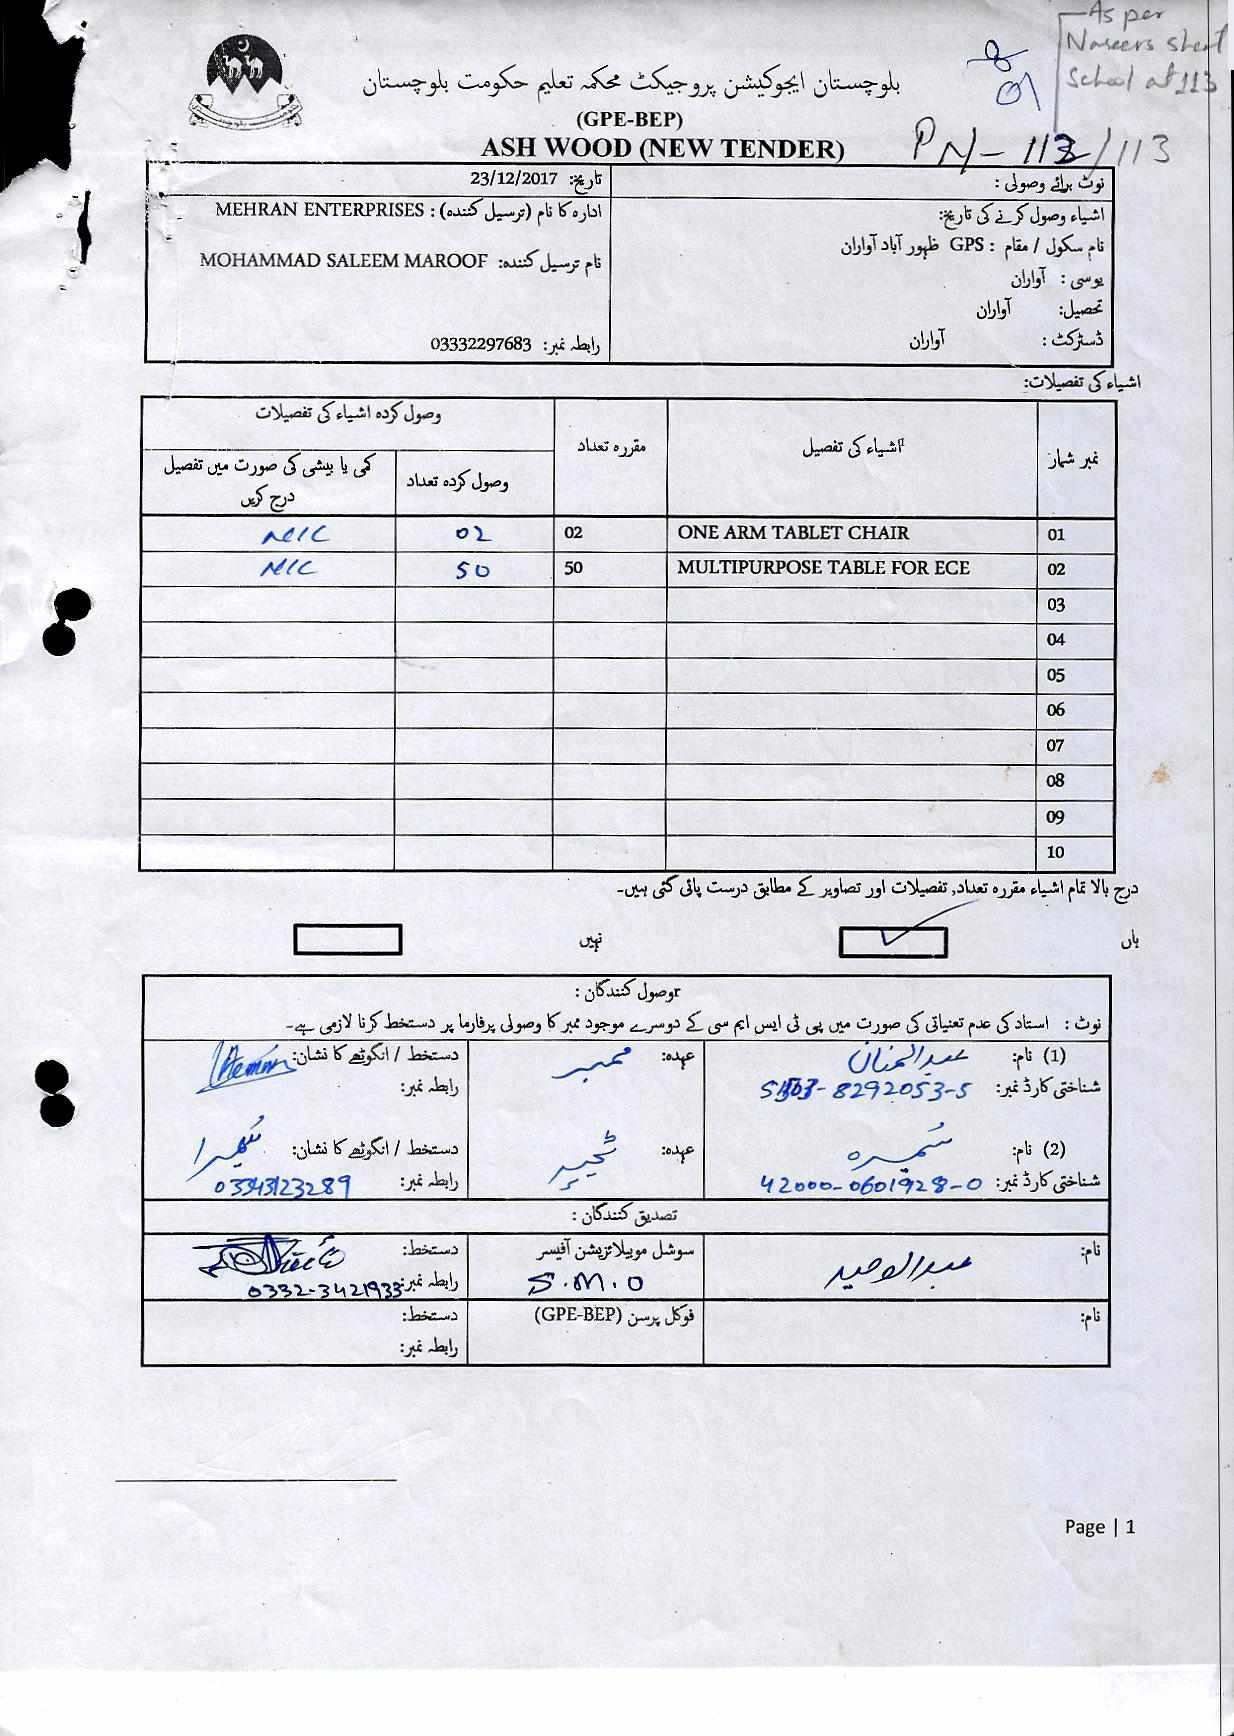 As per
Naseers sheet
School at 113
بلوچستان ایجوکیشن پروجیکٹ محکمہ تعلیم حکومت بلوچستان
(GPE-BEP)
ASH WOOD (NEW TENDER)
PN-113/113
نوٹ برائے وصولی :
تاریخ: 23/12/2017
اشیاء وصول کرنے کی تاریخ:
ادارہ کا نام (ترسیل کنندہ) : MEHRAN ENTERPRISES
نام سکول / مقام : GPS ظہور آباد آواران
نام ترسیل کنندہ: MOHAMMAD SALEEM MAROOF
یوسی : آواران
تحصیل: آواران
ڈسٹرکٹ : آواران
رابطہ نمبر: 03332297683
اشیاء کی تفصیلات:
نمبر شمار
اشیاء کی تفصیل
مقررہ تعداد
وصول کردہ اشیاء کی تفصیلات
وصول کردہ تعداد
کمی یا بیشی کی صورت میں تفصیل
درج کریں
01 ONE ARM TABLET CHAIR 02 02
02 MULTIPURPOSE TABLE FOR ECE 50 50
03
04
05
06
07
08
09
10
درج بالا تمام اشیاء مقررہ تعداد, تفصیلات اور تصاویر کے مطابق درست پائی گئی ہیں۔
ہاں ✓ نہیں
وصول کنندگان :
نوٹ : استاد کی عدم تعیناتی کی صورت میں پی ٹی ایس ایم سی کے دوسرے موجود ممبر کا وصولی پرفارما پر دستخط کرنا لازمی ہے۔
(1) نام: عبدالمنان عہدہ: ممبر دستخط / انگوٹھے کا نشان:
شناختی کارڈ نمبر: 8292053-5 رابطہ نمبر:
(2) نام: ثمیرہ عہدہ: ٹیچر دستخط / انگوٹھے کا نشان:
شناختی کارڈ نمبر: 42000-0601928-0 رابطہ نمبر: 03343123289
تصدیق کنندگان :
نام: عبدالوحید سوشل موبیلائزیشن آفیسر دستخط:
S.M.O رابطہ نمبر: 0332-3421933
نام: فوکل پرسن (GPE-BEP) دستخط:
رابطہ نمبر:
Page | 1